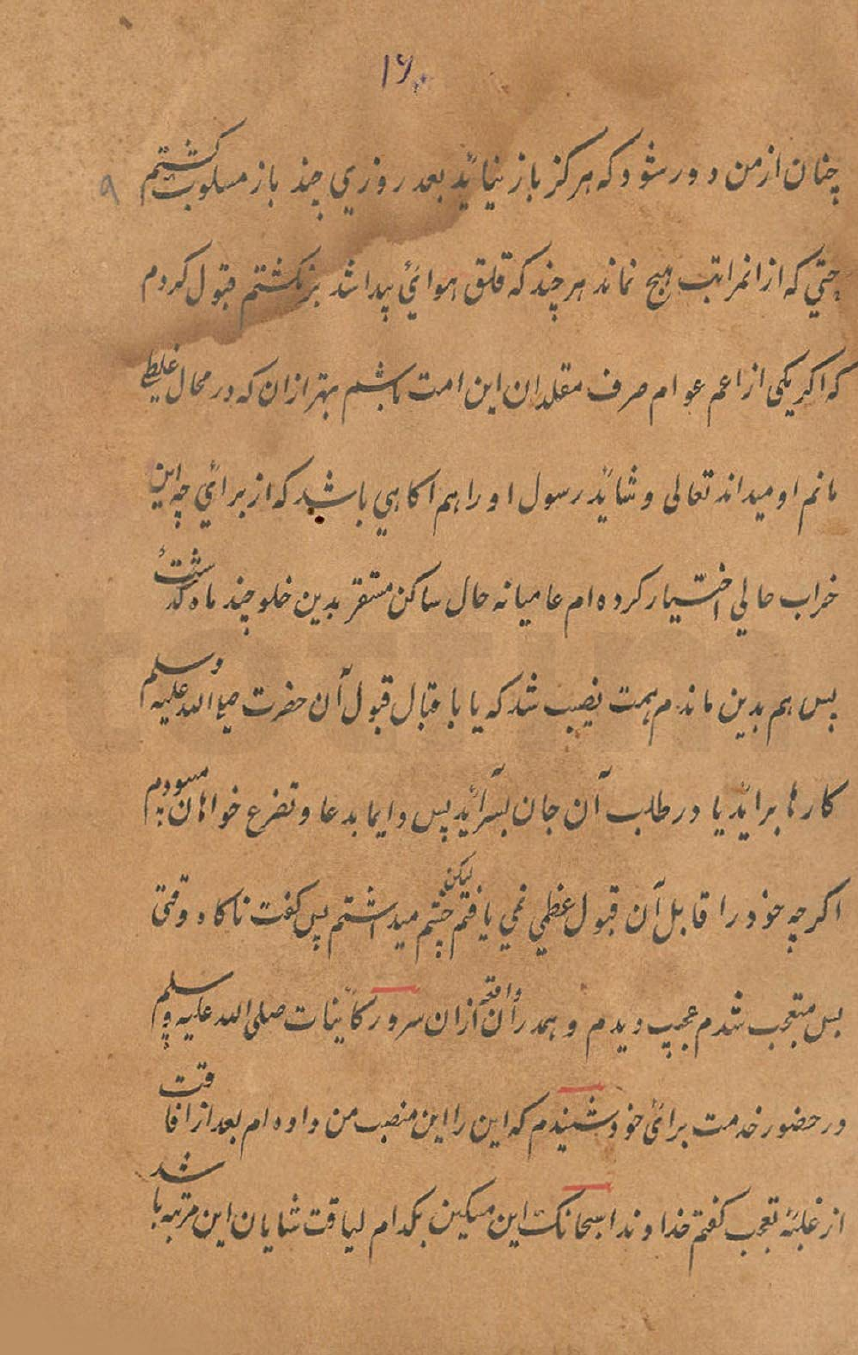 ۱۶۰
چنان ازمن دور شود که هرکز باز نیائد بعد روزي چند باز مسلوب کشتم ۹
حتي که ازانمراتب هیچ نماند هرچند که قلق هوائي پیدا شد برنکشتم قبول کردم
که اکر یکی از اعم عوام صرف مقلدان این امت باشم بهتر ازان که در محال غلیطے
مانم او میداند تعالی و شائد رسول او را هم اکاهي باشد که از برائ چه این
خراب حالي اختیار کرده ام عامیانه حال ساکن مستقر بدین خلو چند ماه کذشت
پس هم بدین ماندم همت نصیب شد که یا باقبال قبول آن حضرت صلی الله علیه وسلم
کارها برائد یا در طلب آن جان بسرآئد پس دایما بدعا و تضرع خواهان میبودم
اکرچه خود را قابل آن قبول عظمی نمي یافتم لیکن چشم میداشتم پس کفت ناکاه وقتی
بس متعجب شدم عجب دیدم و همدران واقعه ازان سرور کاینات صلی الله علیه وسلم
در حضور خدمت برائ خود شنیدم که این را این منصب من داده ام بعد از افاقت
از غلبۀ تعجب کفتم خداوندا سبحانک این مسکین بکدام لیاقت شایان این مرتبه باشد